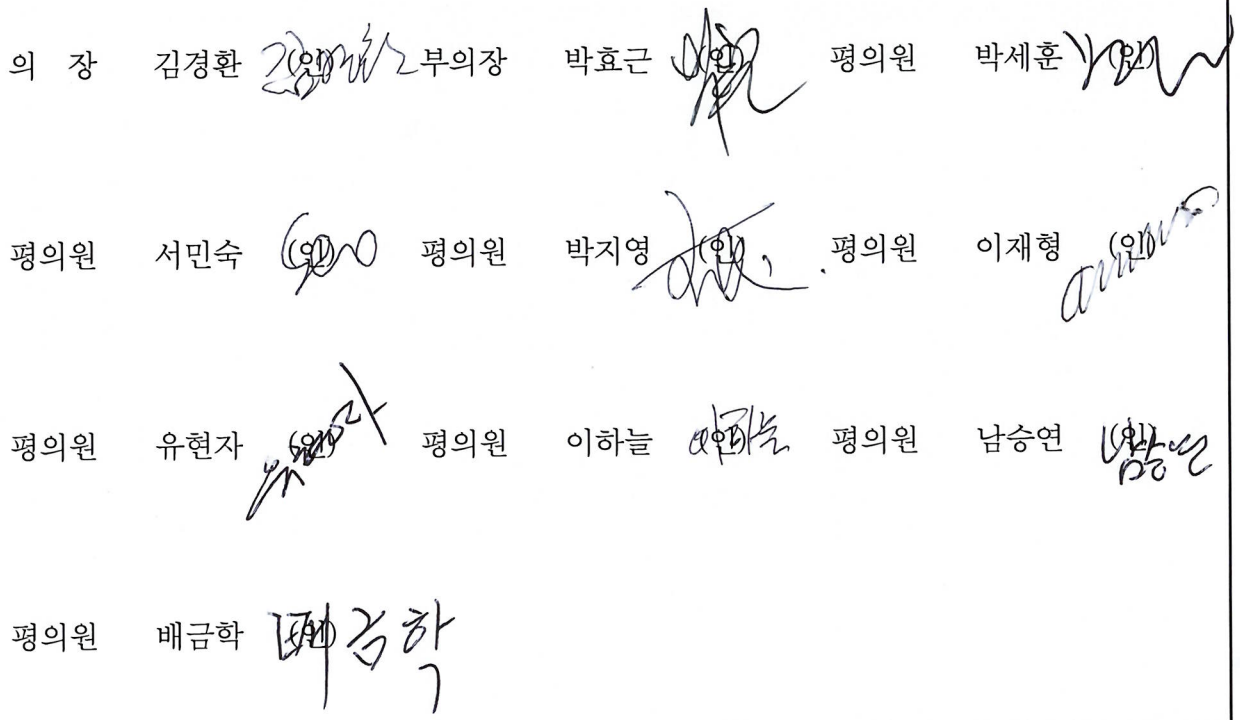 의 장 김경환 (인) 부의장 박효근 (인) 평의원 박세훈 (인)
평의원 서민숙 (인) 평의원 박지영 (인) 평의원 이재형 (인)
평의원 유현자 (인) 평의원 이하늘 (인) 이하늘 평의원 남승연 (인) 남승연
평의원 배금학 (인) 배금학